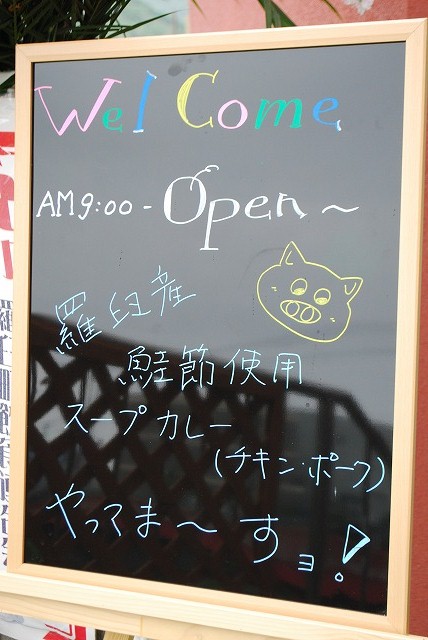 WelCome
AM9:00-Open～
羅臼産
鮭節使用
スープカレー
(チキン・ポーク)
やってま～すョ!